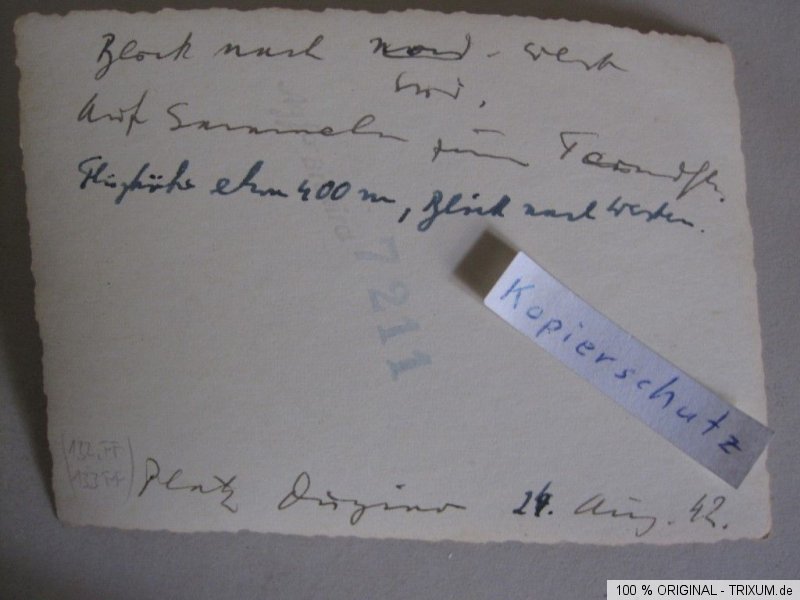 Blick nach Nord - West
Süd,
Auf Sammeln zum
Flughöhe etwa 400 m, Blick nach Westen.
7211
Kopierschutz
(132.FF
133 FF)
Platz Dugino 24. Aug. 42.
100 % ORIGINAL - TRIXUM.de